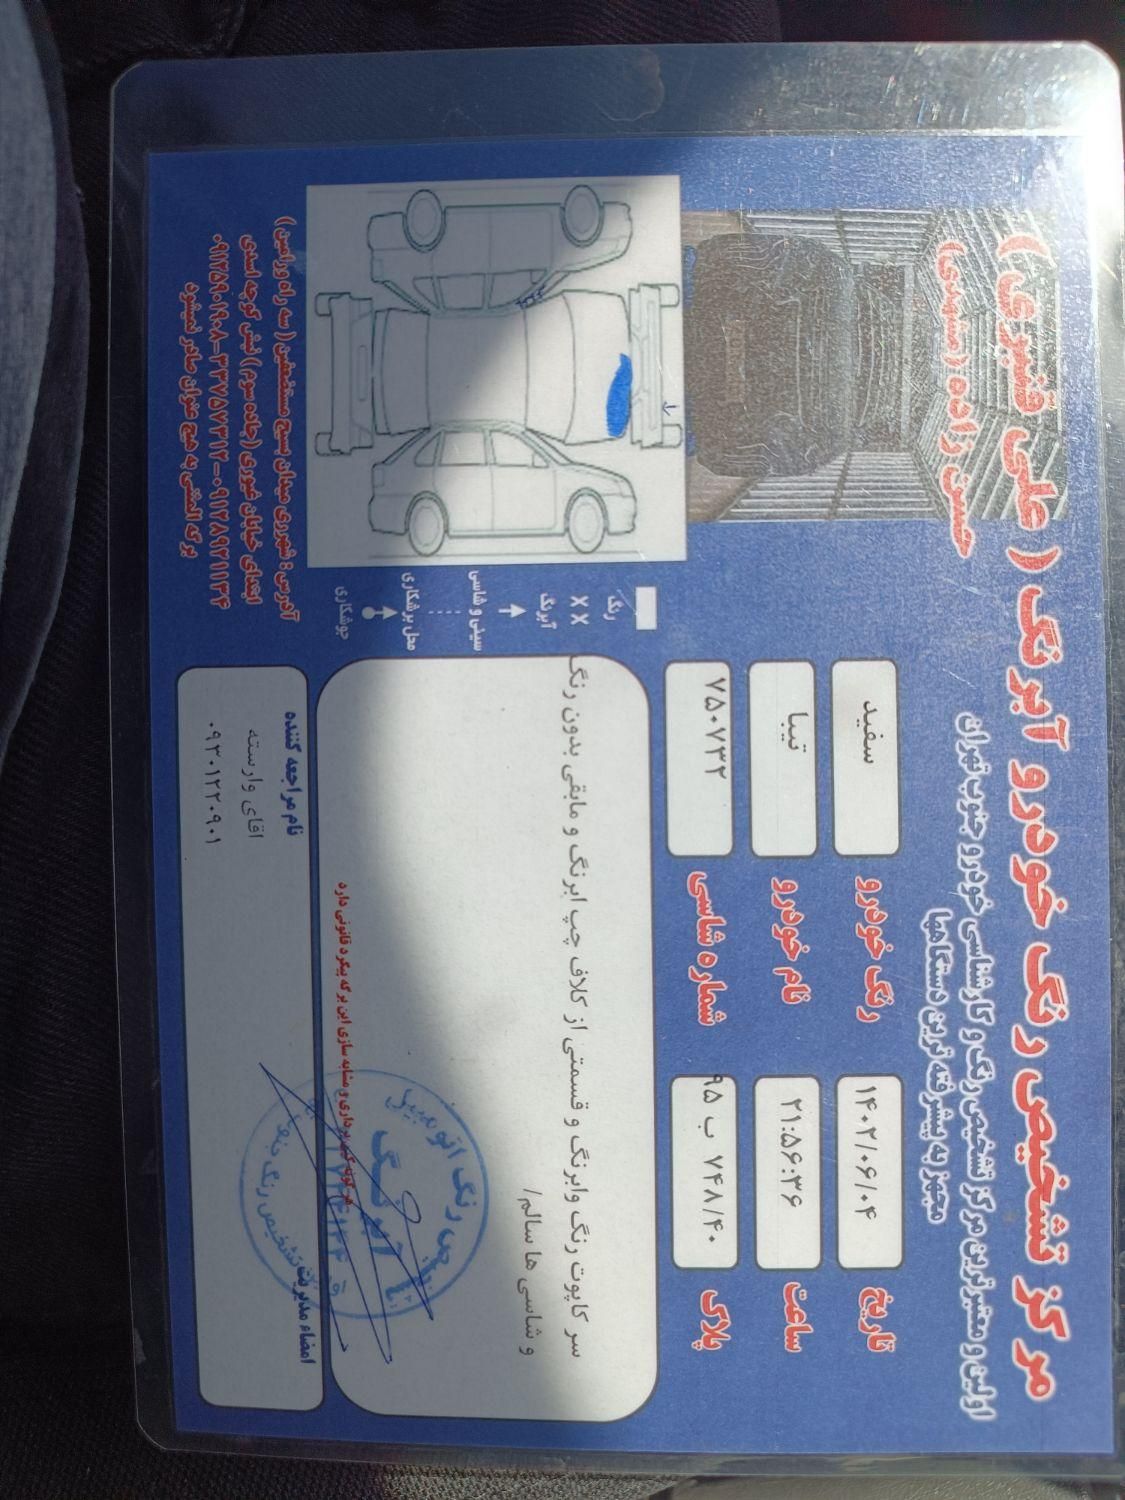 مرکز تشخیص رنگ خودرو آبرنگ ( علی قنبری )
اولین و معتبرترین مرکز تشخیص رنگ و کارشناسی خودرو جنوب تهران
حسین زاده (مشهدی)
مجهز به پیشرفته ترین دستگاهها
تاریخ ۱۴۰۲/۰۶/۰۴
رنگ خودرو سفید
ساعت ۲۱:۵۶:۳۶
نام خودرو تیبا
پلاک ۹۵ ب ۷۴۸/۴۰
شماره شاسی ۷۵۰۷۳۲
رنگ
X X آبرنگ
سینی و شاسی
محل برشکاری
جوشکاری
سر کاپوت رنگ وابرنگ و قسمتی از کلاف چپ ابرنگ و مابقی بدون رنگ
و شاسی ها سالم/
هر گونه کپی برداری و مشابه سازی این برگه پیگرد قانونی داره
امضاء مدیریت
نام مراجعه کننده
اقای وارسته
۰۹۳۰۱۲۲۰۹۰۱
تشخیص رنگ اتومبیل
آبرنگ
تشخیص رنگ
آدرس : شهرری میدان بسیج مستضعفین ( سه راه ورامین)
ابتدای خیابان غیوری (جاده سوم) نبش کوچه اسدی
۰۹۱۲۵۹۰۱۹۰۸-۳۳۷۵۷۳۱۲-۰۹۱۲۸۹۲۱۱۳۴
برگ المثنی به هیچ عنوان صادر نمیشود